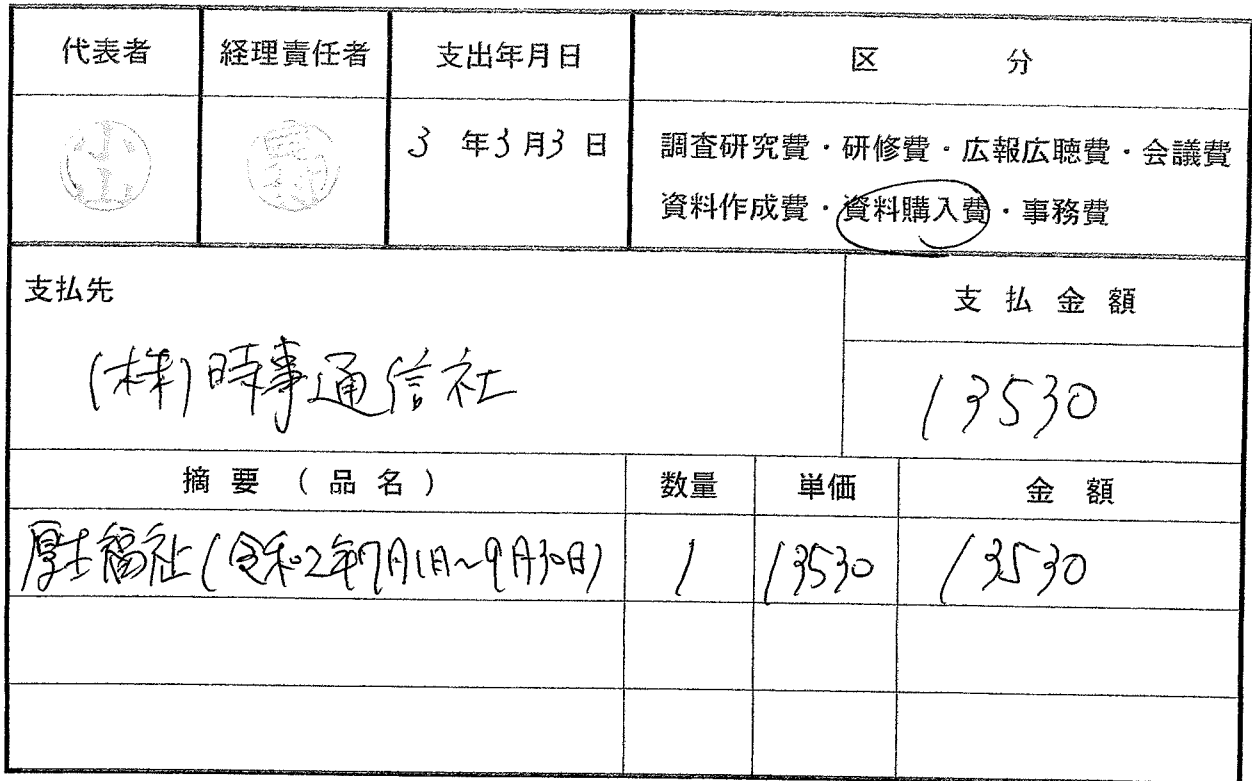 代表者 経理責任者 支出年月日 区 分
小山 3 年3月3日 調査研究費・研修費・広報広聴費・会議費
資料作成費・資料購入費・事務費
支払先 支払金額
(株)時事通信社 13530
摘要(品名) 数量 単価 金額
厚生福祉(令和2年7月1日~9月30日) 1 13530 13530